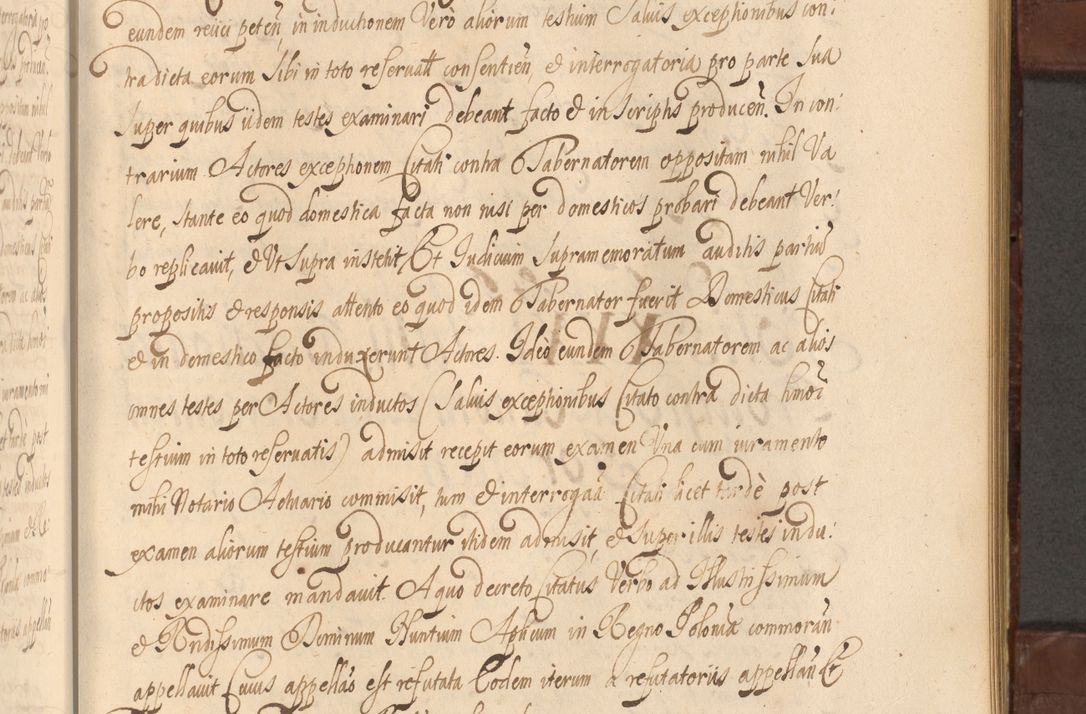 eundem reiici peteñ, in inductionem Verò aliorum testium Salvis exceptionibus con:
tra dicta eorum Sibi in toto reservatt consentień, & interrogatoria pro parte Sua
Super quibus iidem testes examinari debeant facto & in Scriptis produceñ. In con:
trarium Actores exceptionem Citati contra Tabernatorem oppositam nihil Va
lere, stante eo quod domestica facta non nisi per domesticos probari debeant Ver:
bo replicavit, & Ut Supra institit, Et Iudicium Supramemoratum auditis partiũ
propositis & responsis attento eo quod idem Tabernator fuerit Domesticus Citati
& in domestico facto induxerunt Actores. Ideò eundem Tabernatorem ac alios
omnes testes per Actores inductos (Salvis exceptionibus Citato contra dicta hmoi
testium in toto reservatis) admisit recepit eorum examen Una cum iuramento
mihi Notario Actuario commisit, tum & interrogaã Citati licet tardè post
examen aliorum testium producantur itidem admisit, & Super illis testes indu:
ctos examinare mandavit. A quo decreto Citatus Verbo ad Illustrissimum
& Rndissimum Dominum Nuntium Aplicum in Regno Poloniæ commorañ
appellavit Cuius appellão est refutata Eodem iterum a refutatoriis appellañ Et